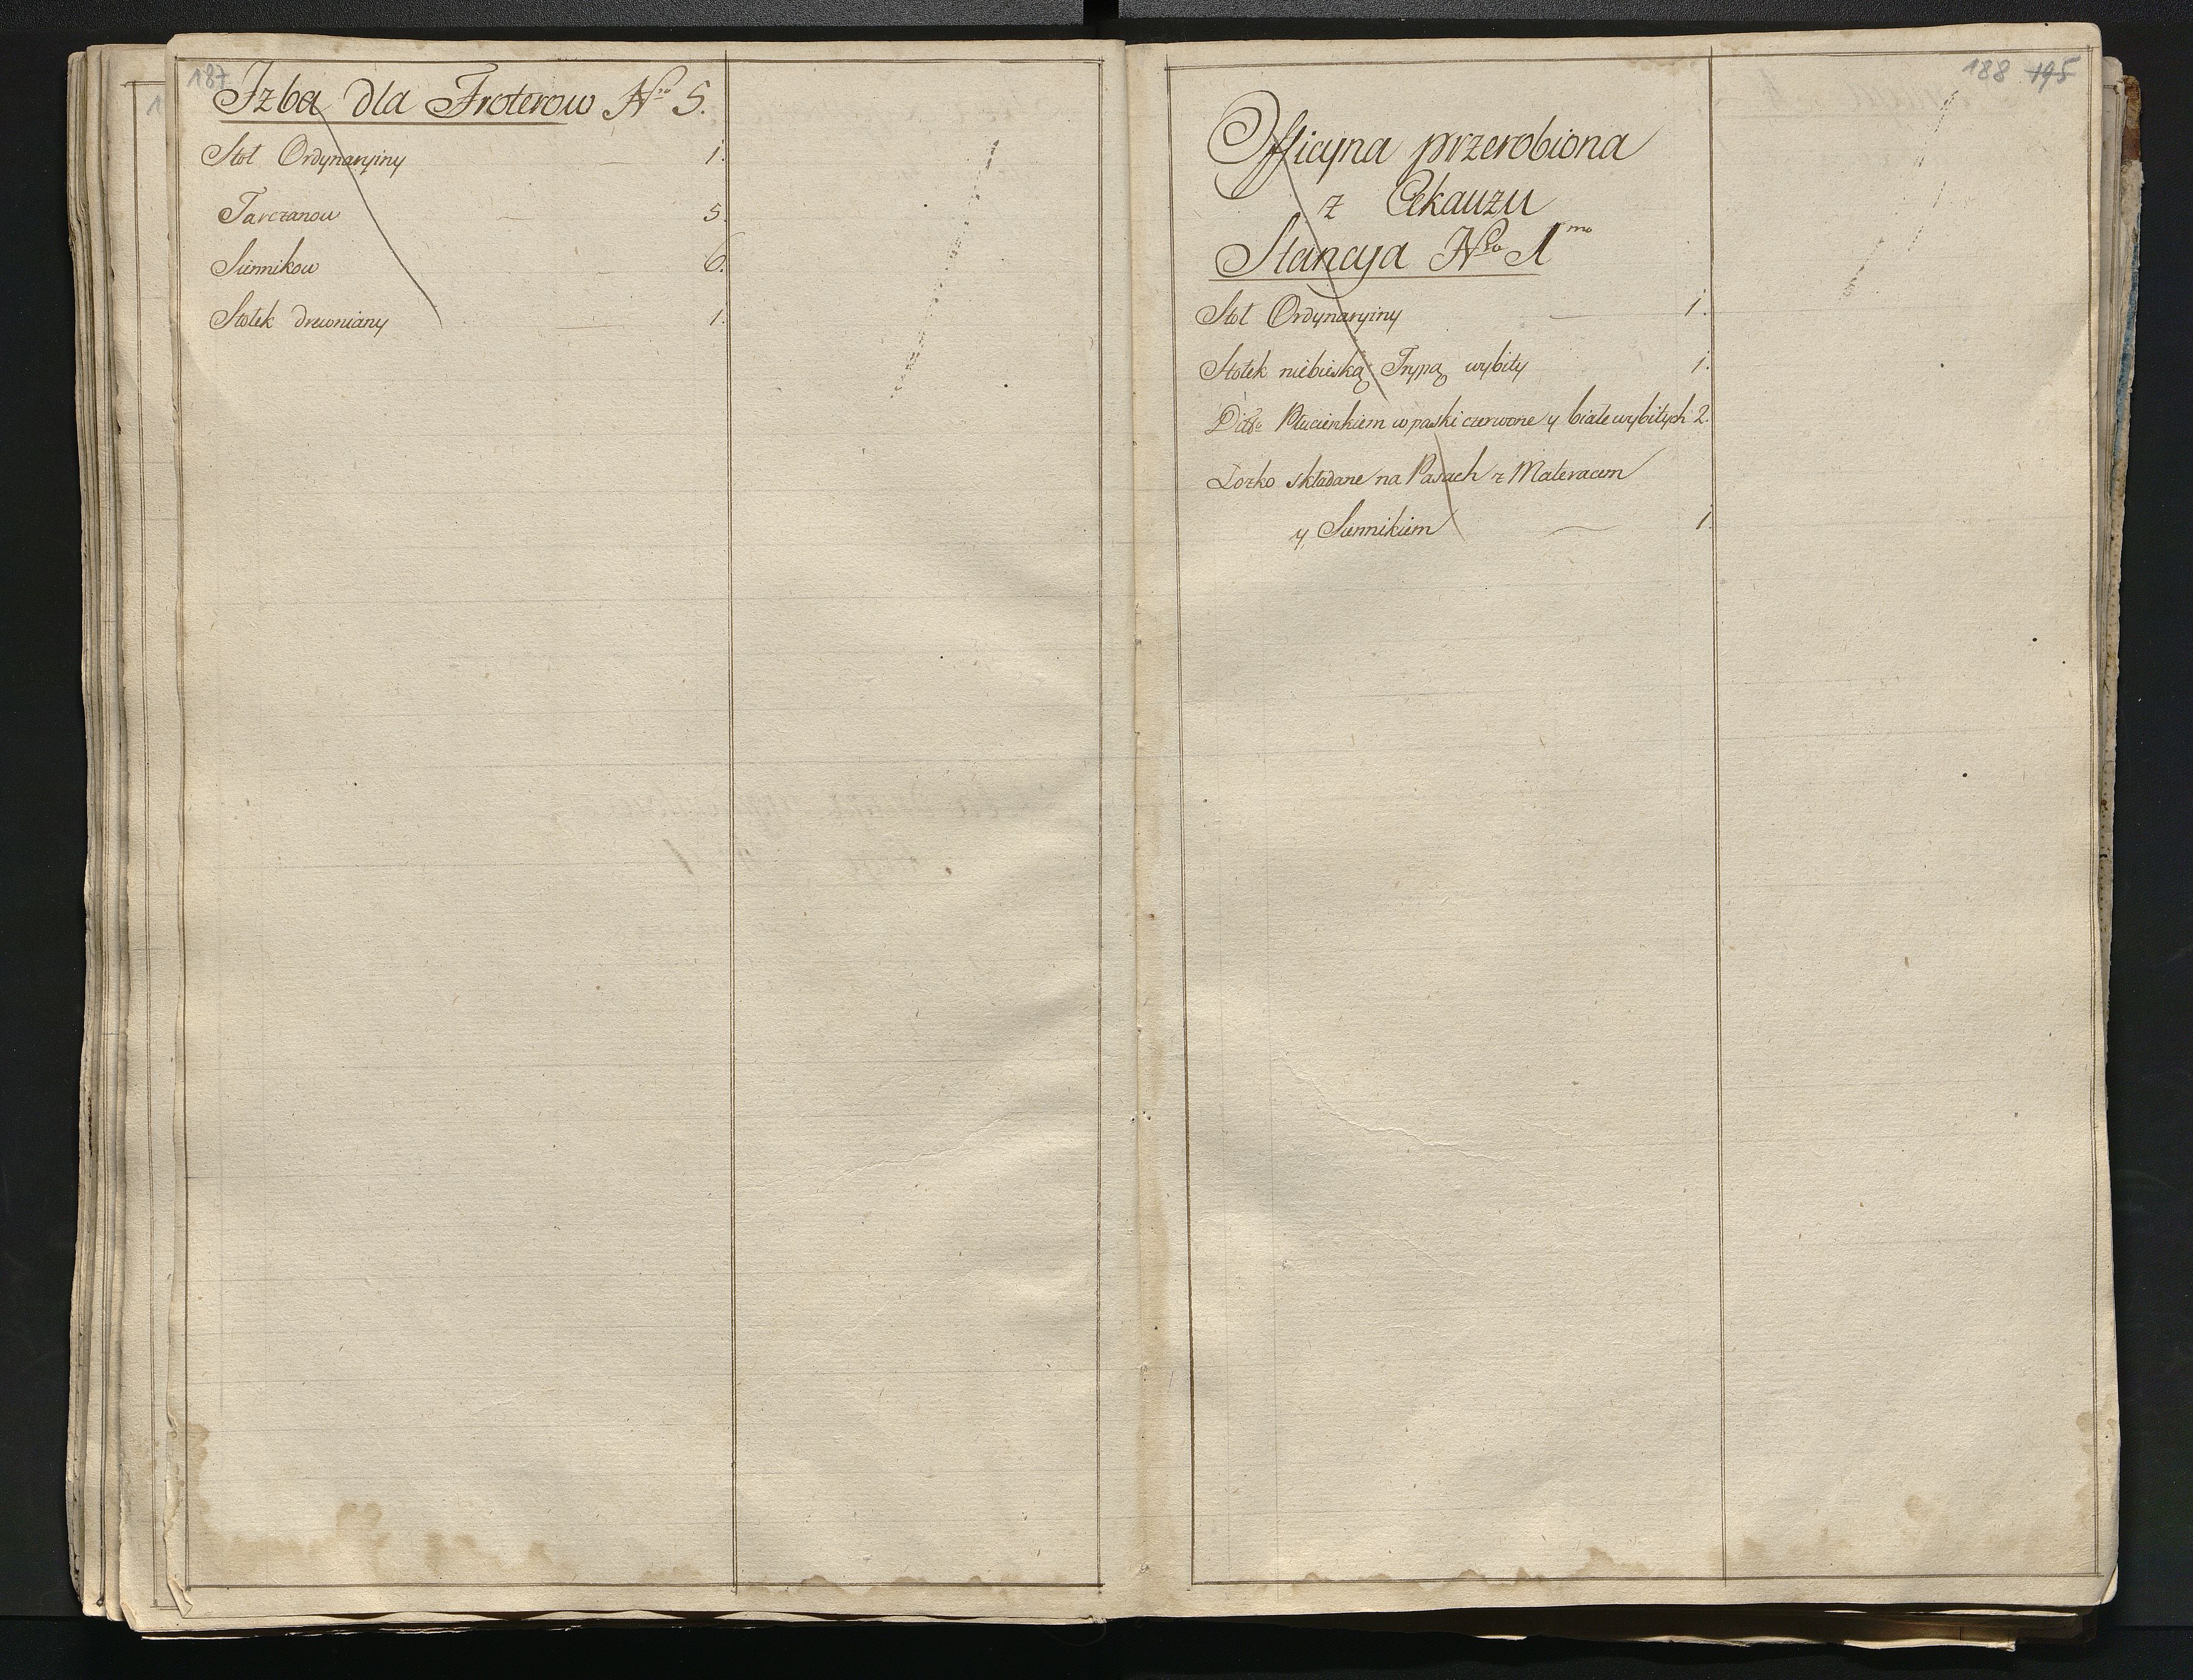 187
Izba dla Froterow N<sup>ro</sup> 5.
Stoł Ordynaryiny 1.
Tarczanow 5.
Siennikow 6.
Stołek drewniany 1.
188 195
Officyna przerobiona
z Cekauzu
Stancya N<sup>ro</sup> 1<sup>mo</sup>
Stoł Ordynaryiny 1.
Stołek niebieską Trypą wybity 1.
Ditto Płucienkiem w paski czerwone y białe wybitych 2.
Łozko składane na Pasach z Materacem
y Siennikiem 1.